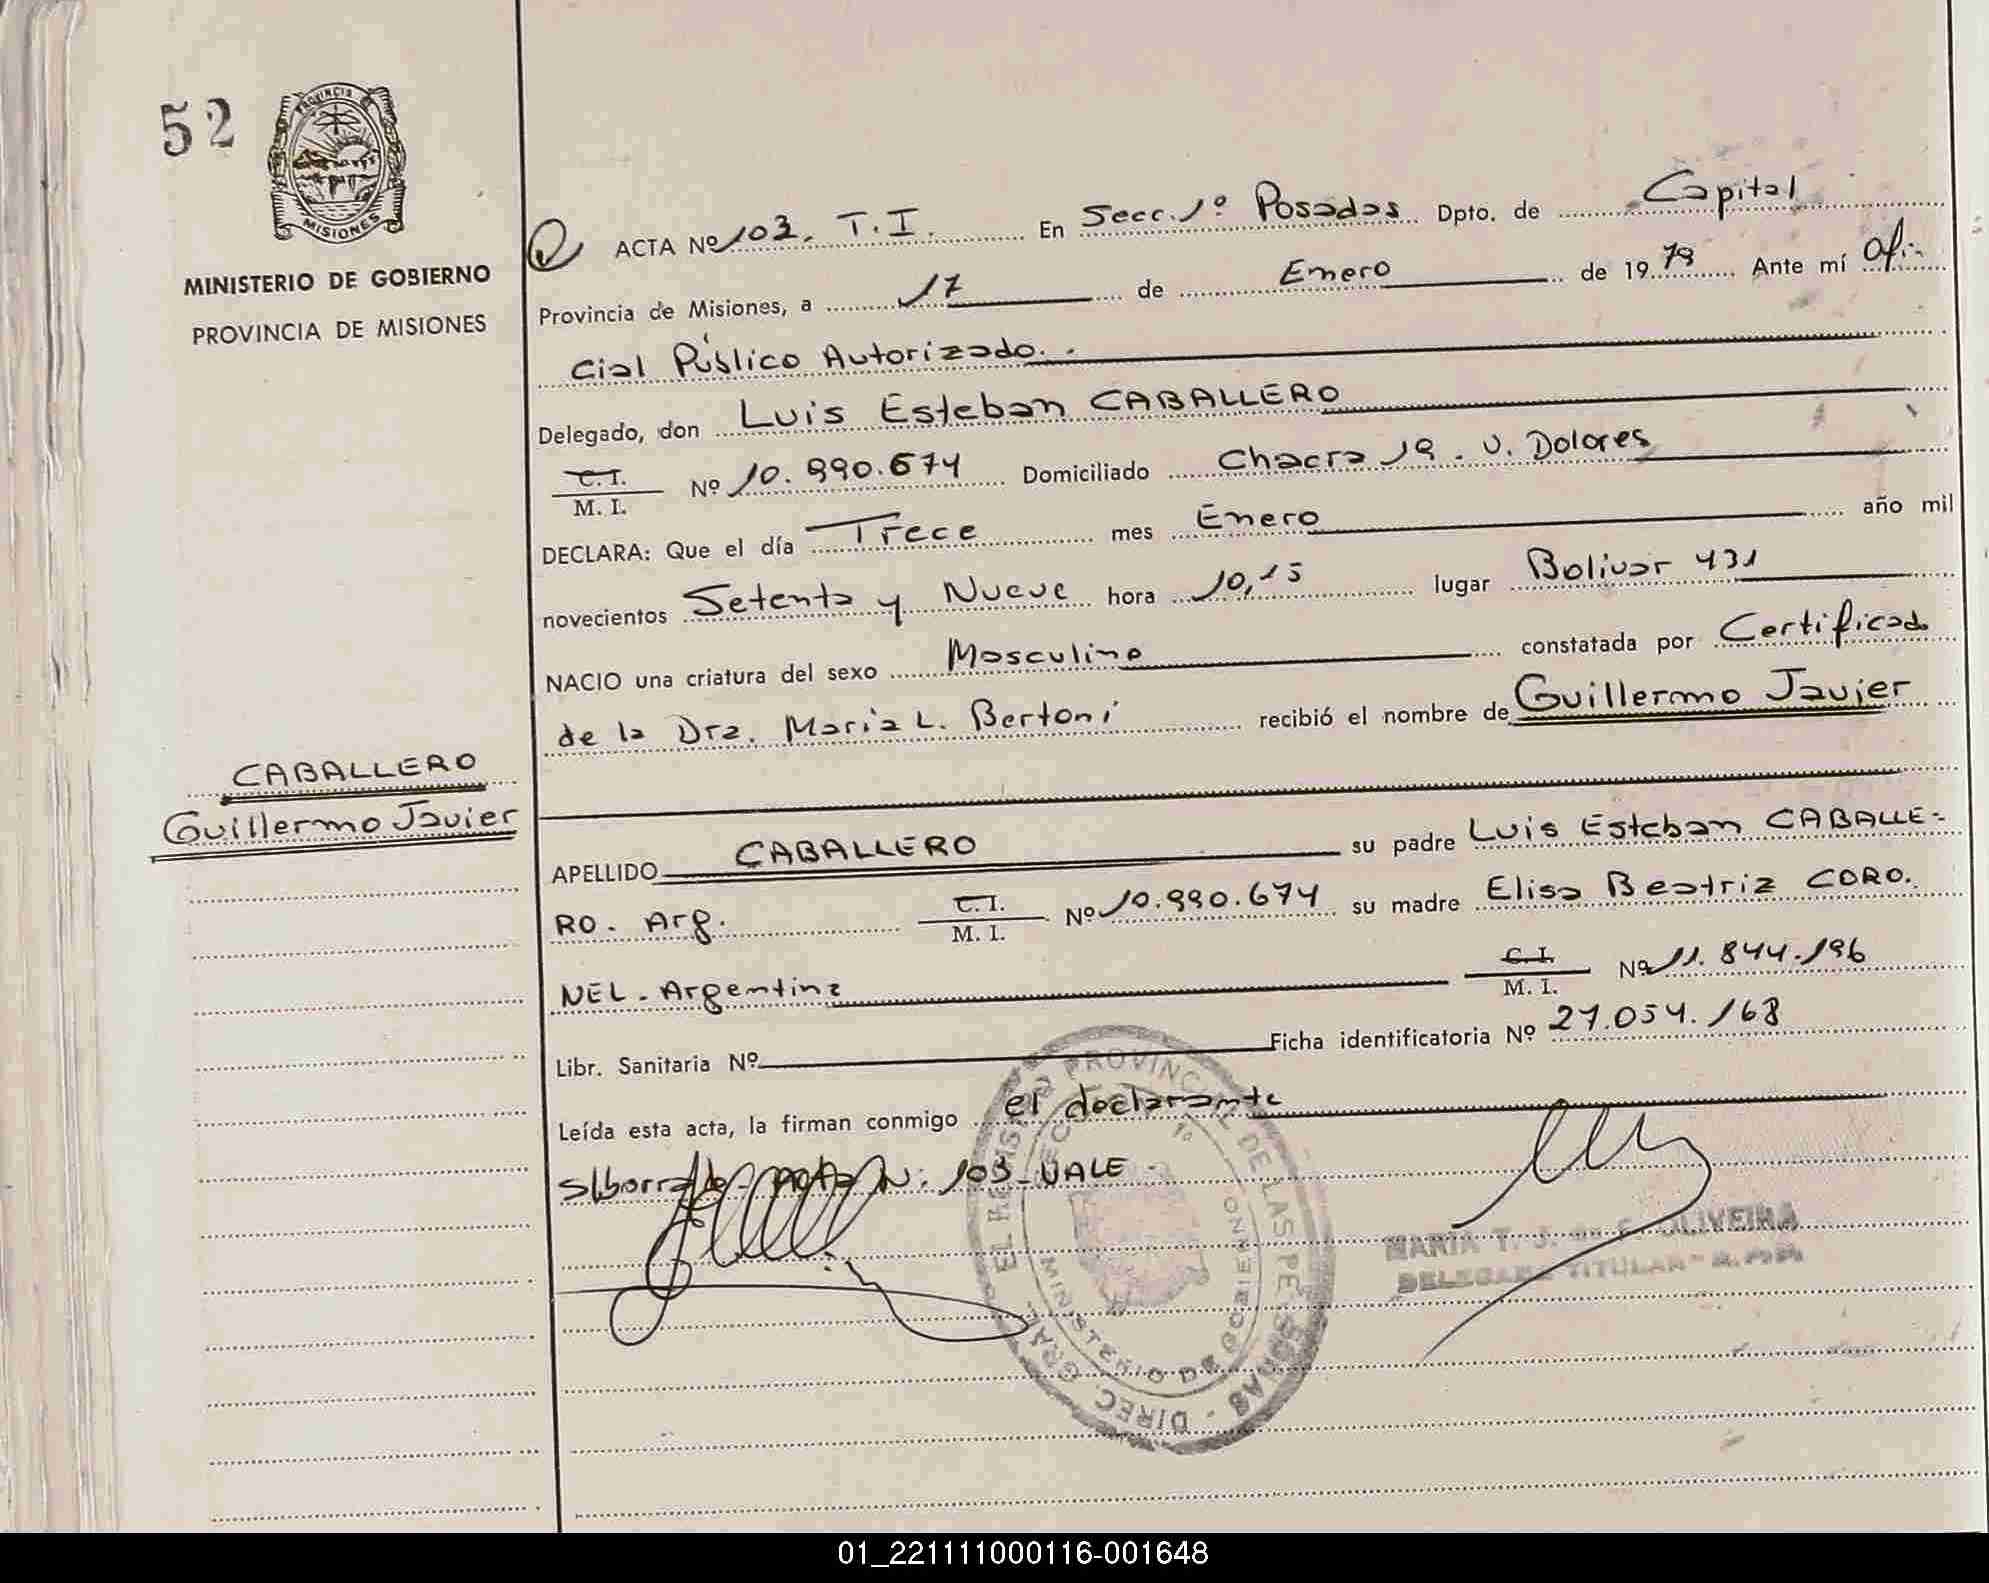 52
PROVINCIA DE
MISIONES
MINISTERIO DE GOBIERNO
PROVINCIA DE MISIONES
ACTA Nº 103. T.I. En Secc. 1º Posadas Dpto. de Capital
Provincia de Misiones, a 17 de Enero de 1979 Ante mí Ofi-
cial Público Autorizado.
Delegado, don Luis Esteban CABALLERO
C.I.
M. I. Nº 10.990.674 Domiciliado Chacra 19. V. Dolores
DECLARA: Que el día Trece mes Enero año mil
novecientos Setenta y Nueve hora 10,15 lugar Bolivar 431
NACIO una criatura del sexo Masculino constatada por Certificado
de la Dra. Maria L. Bertoni recibió el nombre de Guillermo Javier
CABALLERO
Guillermo Javier
APELLIDO CABALLERO su padre Luis Esteban CABALLE-
RO. Arg. C.I.
M. I. Nº 10.990.674 su madre Elisa Beatriz CORO.
NEL. Argentina C.I.
M. I. Nº 11.844.196
Libr. Sanitaria Nº Ficha identificatoria Nº 27.054.168
Leída esta acta, la firman conmigo el declarante
s/borrado Acta N. 103 VALE
MARIA T. J. de F. OLIVEIRA
DELEGADA TITULAR
DIREC. GRAL. EL REGISTRO PROVINCIAL DE LAS PERSONAS
MINISTERIO DE GOBIERNO
01_221111000116-001648